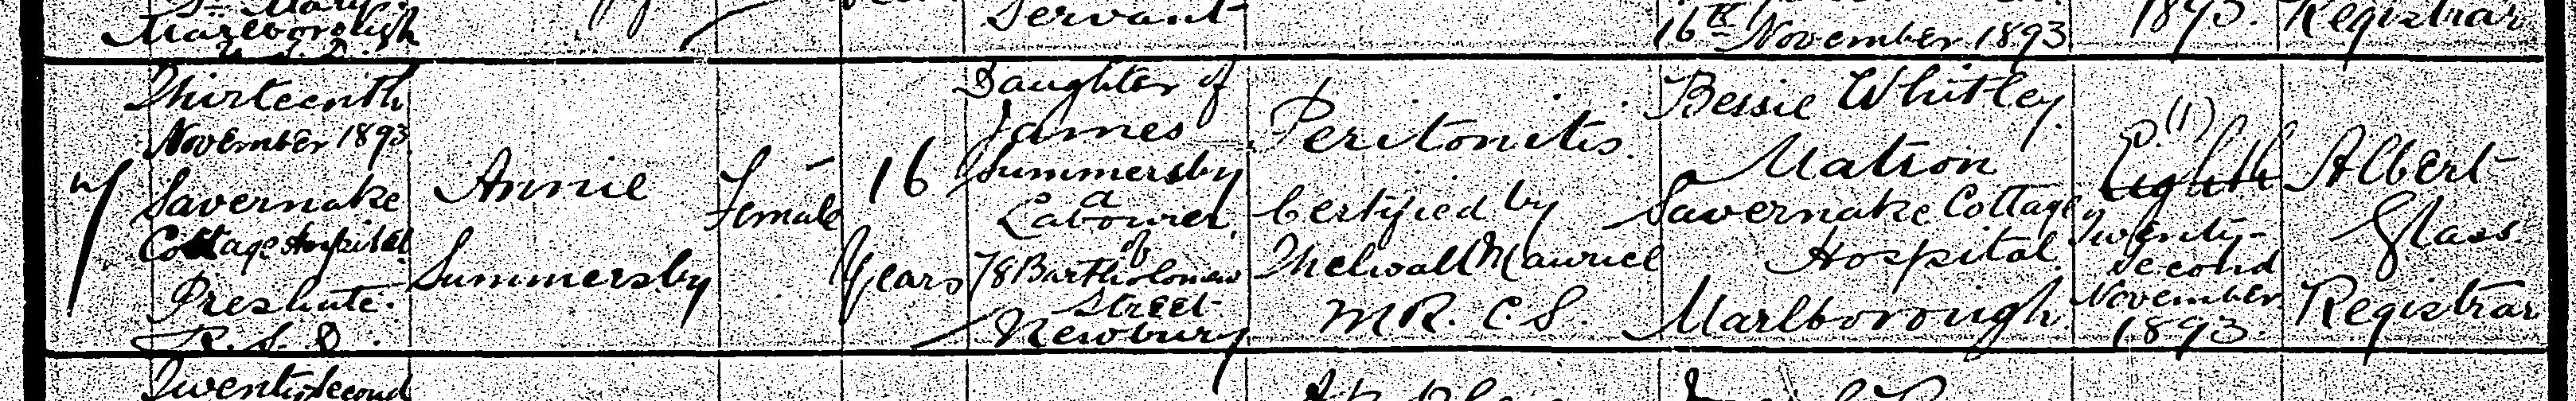 Marlborough
U.S.D.
Servant
16th November 1893
1893.
Registrar
Thirteenth
November 1893
Savernake
Cottage Hospital
Preshute
R.S.D.
Annie
Summersby
Female
16
Years
Daughter of
James
Summersby
a
Labourer
of
78 Bartholomew
Street
Newbury
Peritonitis.
Certified by
Thelwall Maurice
M.R.C.S.
Bessie Whitley
Matron
Savernake Cottage
Hospital
Marlborough
Eighth
Twenty-
second
November
1893.
Albert
Glass
Registrar
Twenty second